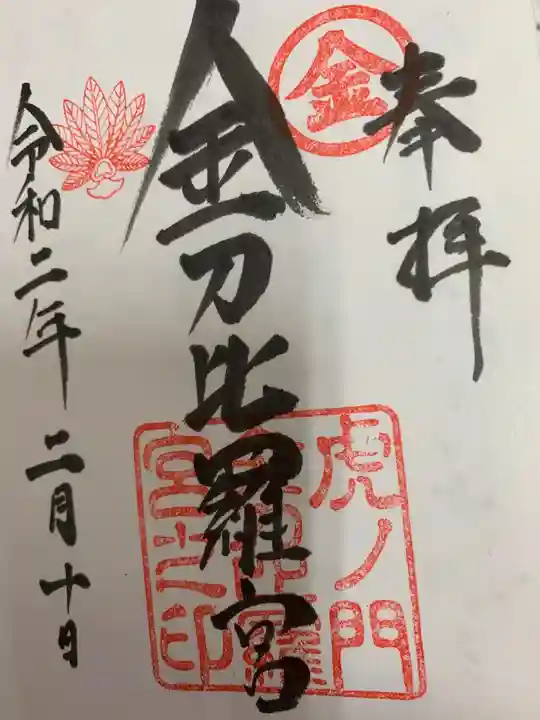 奉拝
金
金刀比羅宮
虎ノ門
金刀比羅
宮之印
令和二年二月十日